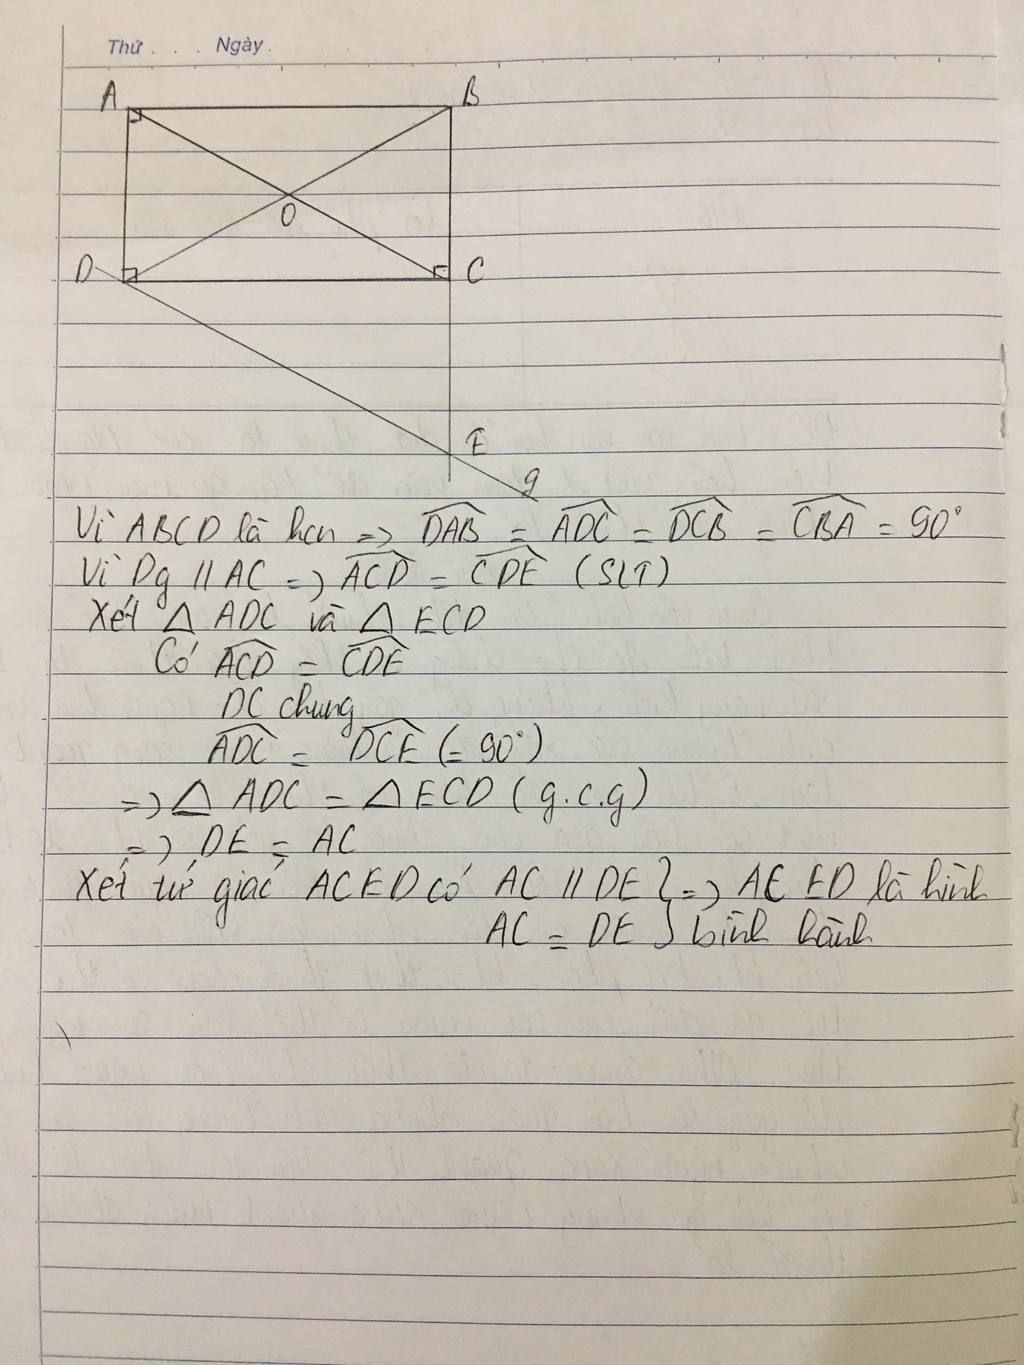 Thứ . . . Ngày .
A B
O
D C
E
g
Vì ABCD là hcn => DAB = ADC = DCB = CBA = 90°
Vì Dg // AC => ACD = CDE (SLT)
Xét △ ADC và △ ECD
Có ACD = CDE
DC chung
ADC = DCE (= 90°)
=> △ ADC = △ ECD (g.c.g)
=> DE = AC
Xét tứ giác ACED có AC // DE } => ACED là hình
AC = DE } bình hành